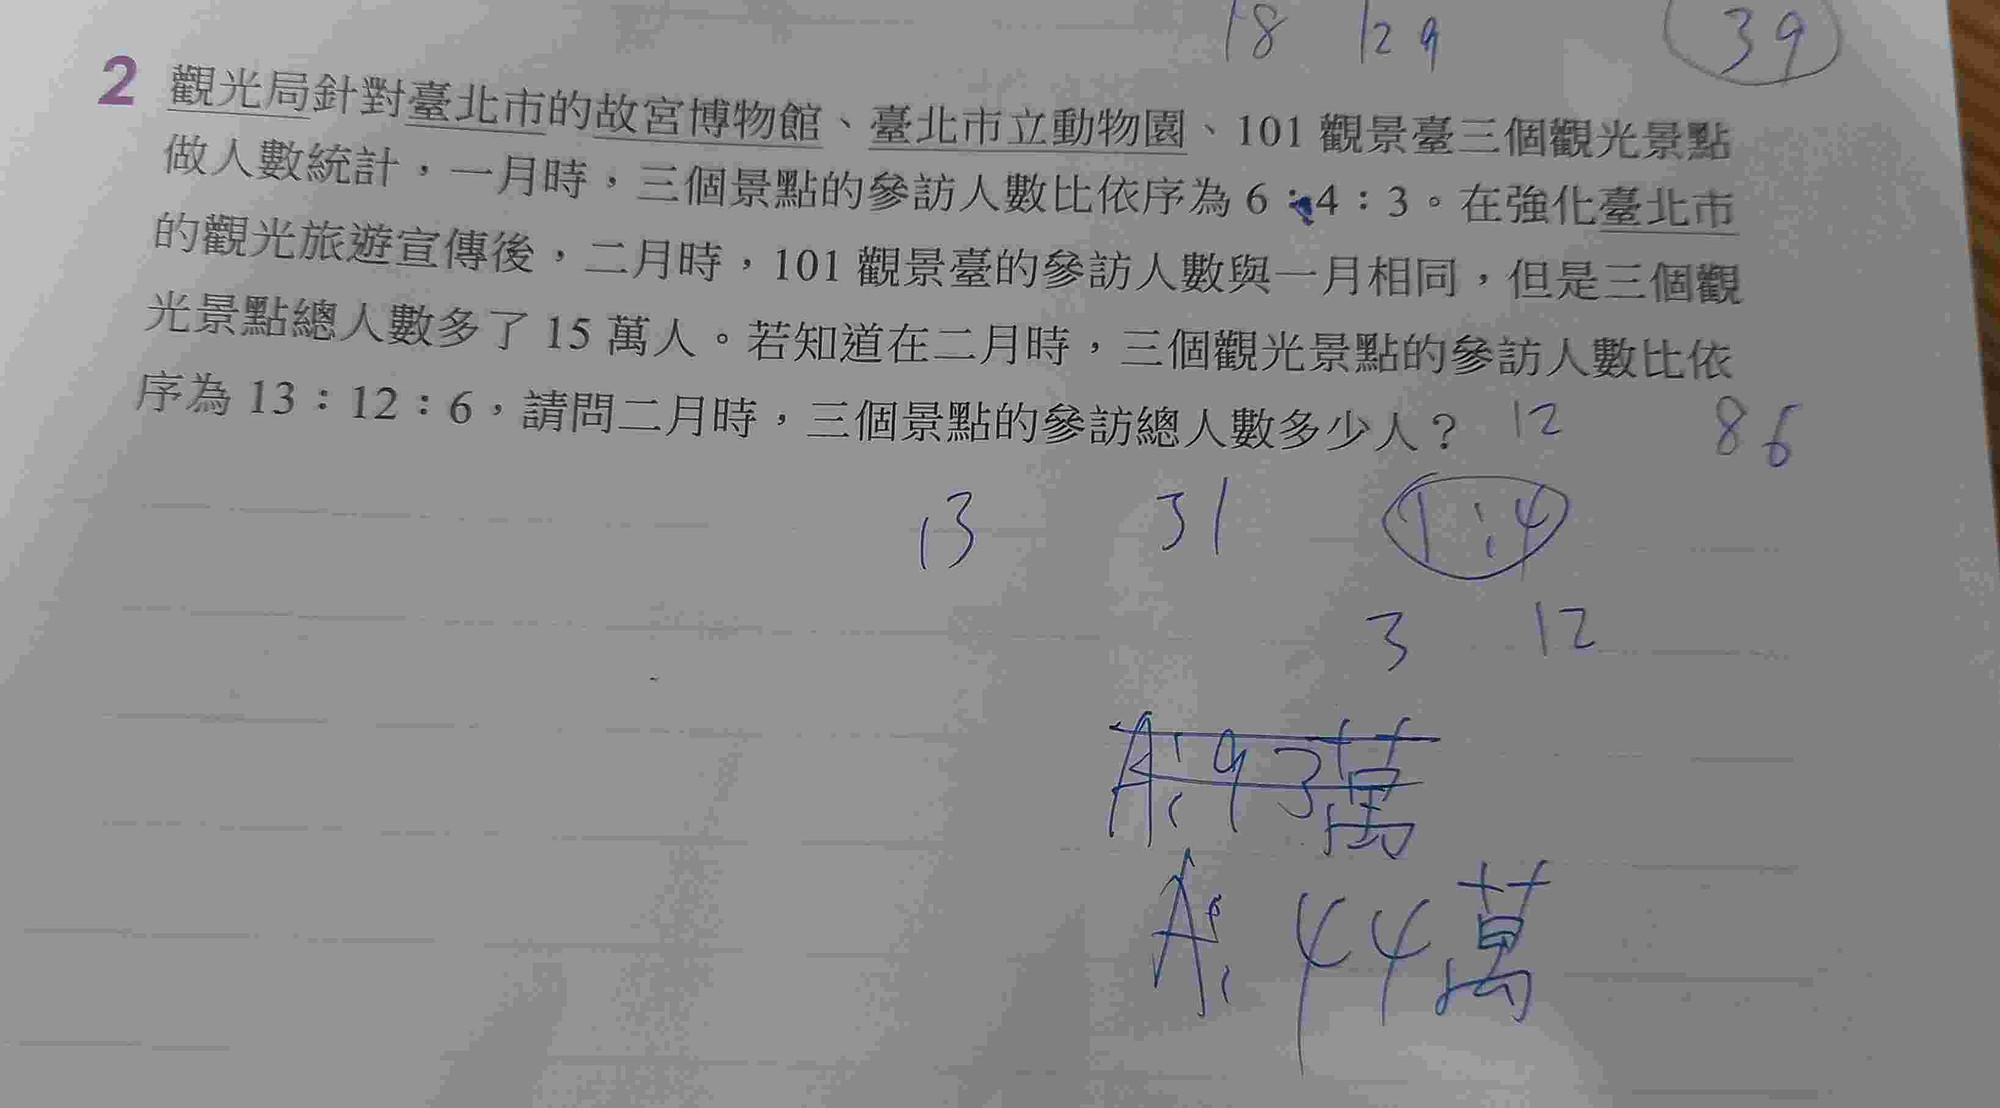 18 129 39
2 觀光局針對臺北市的故宮博物館、臺北市立動物園、101 觀景臺三個觀光景點
做人數統計，一月時，三個景點的參訪人數比依序為 6：4：3。在強化臺北市
的觀光旅遊宣傳後，二月時，101 觀景臺的參訪人數與一月相同，但是三個觀
光景點總人數多了 15 萬人。若知道在二月時，三個觀光景點的參訪人數比依
序為 13：12：6，請問二月時，三個景點的參訪總人數多少人？ 12 86
13 31 1:4
3 12
A:93萬
A:44萬